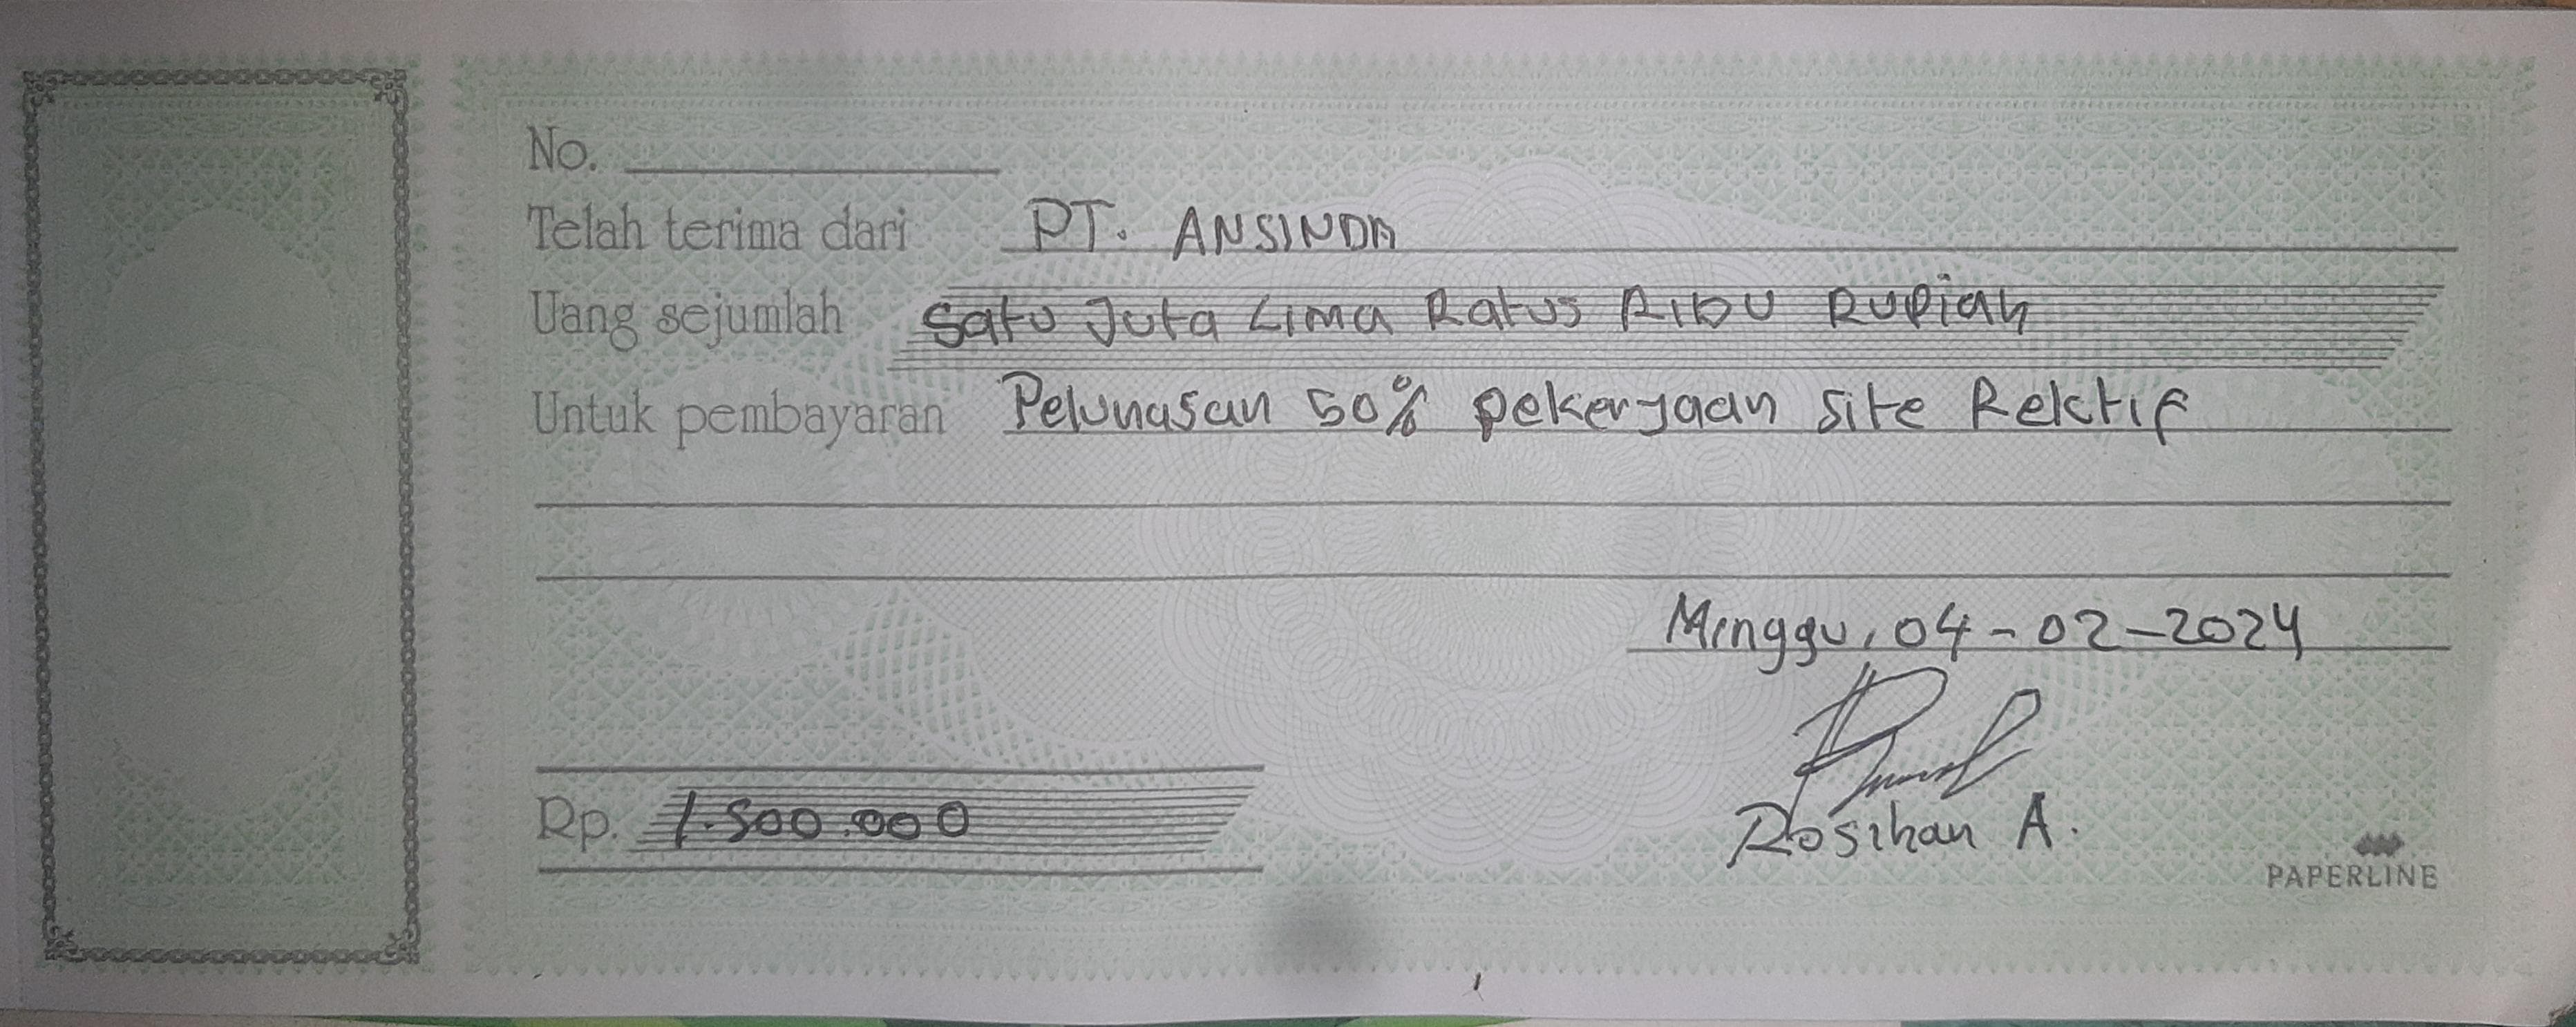 No.
Telah terima dari PT. ANSINDA
Uang sejumlah Satu Juta Lima Ratus Ribu Rupiah
Untuk pembayaran Pelunasan 50% pekerjaan site Rektif
Minggu, 04-02-2024
Rp. 1.500.000
Rosihan A.
PAPERLINE